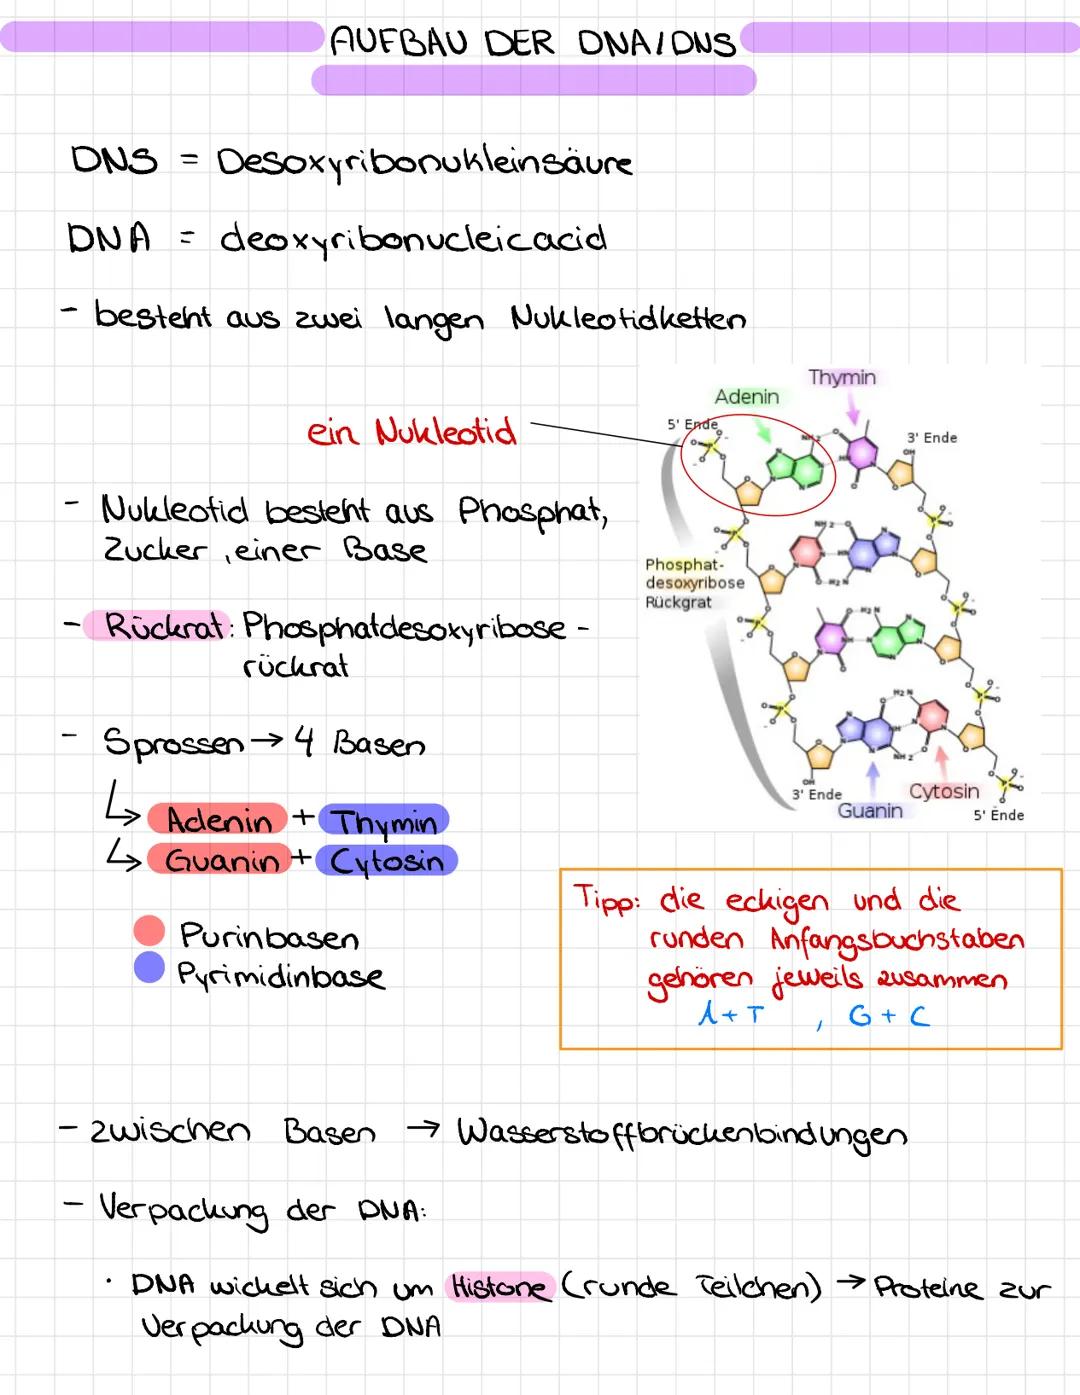 AUFBAU DER DNA/DNS
DNS = Desoxyribonukleinsäure
DNA = deoxyribonucleicacid
- besteht aus zwei langen Nukleotidketten
ein Nukleotid
- Nukleotid besteht aus Phosphat,
Zucker, einer Base
- Rückrat: Phosphatdesoxyribose-
rückrat
- Sprossen → 4 Basen
↳ Adenin + Thymin
↳ Guanin + Cytosin
Purinbasen
Pyrimidinbase
Thymin
Adenin
5' Ende
3' Ende
Phosphat-
desoxyribose
Rückgrat
3' Ende
Cytosin
Guanin
5' Ende
Tipp: die eckigen und die
runden Anfangsbuchstaben
gehören jeweils zusammen
A+T , G+C
- zwischen Basen → Wasserstoffbrückenbindungen
- Verpackung der DNA:
· DNA wickelt sich um Histone (runde Teilchen) → Proteine zur
Verpackung der DNA